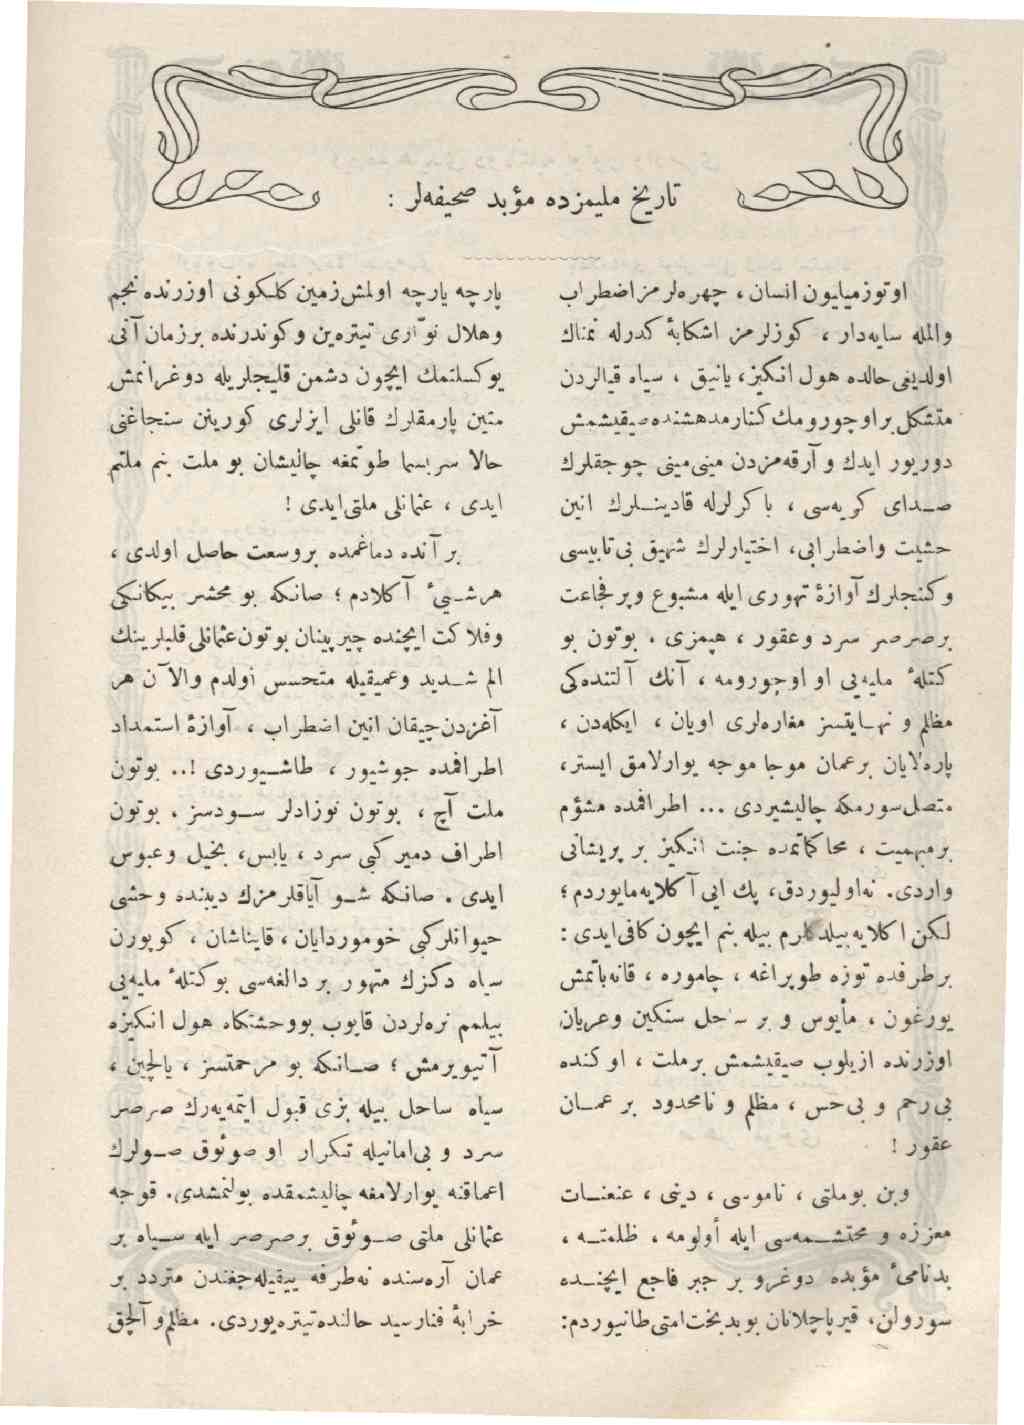 تاریخ ملیمزده مؤبد صحیفه‌لر :
اوتوزمیلیون انسان ، چهره‌لرمز اضطراب
والمله سایه‌دار ، کوزلرمز اشکابهٔ کدرله نمناك
اولدیغی حالده هول انکیز، یانیق ، سیاه قیالردن
متشکل بر اوچورومك کنار مدهشنده صیقیشمش
دوریور ایدك و آرقه‌مزدن مینی مینی چوجقلرك
صدای کریه‌سی ، باکرلرله قادینلرك انین
حشیت واضطرابی، اختیارلرك شهیق بی‌تابیسی
وکنجلرك آوازهٔ تهوری ایله مشبوع وپرفجاعت
برصرصر سرد وعقور ، هپمزی . بوتون بو
کتلهٔ ملیه‌یی او اوچورومه ، آنك آلتنده‌کی
مظلم و نهایتسز مغاره‌لری اویان ، ایکله‌دن ،
پاره‌لایان برعمان موجا موجه یوارلامق ایستر،
متصل سورمکه چالیشیردی ... اطرافمده مشؤم
برمبهمیت ، محاکماتمده جنت انکیز بر پریشانی
واردی. نه‌اولیوردق، پك ایی آکلایه‌مایوردم ؛
لکن اکلایه‌بیلدکلرم بیله بنم ایچون کافی ایدی :
برطرفده توزه طوپراغه ، چاموره ، قانه‌باتمش
یورغون ، مأیوس و بر ساحل سنکین وعریان
اوزرنده ازیلوب صیقیشمش برملت ، اوکنده
بی‌رحم و بی‌حس ، مظلم و نامحدود بر عمان
عقور !
وبن بوملتی ، ناموسی ، دینی ، عنعنات
معززه و محتشمه‌سی ایله أولومه ، ظلمته ،
بدنامیٔ مؤبده دوغرو بر جبر فاجع ایچنده
سورولن، قیرپاچلانان بوبدبخت امتی طانیوردم:
پارچه پارچه اولمش زمین کلکونی اوزرنده نجم
وهلال نوّاری تیتره‌ین وکوندرنده برزمان آنی
یوکسلتمك ایچون دشمن قلیجلریله دوغرانمش
متین پارمقلرك قانلی ایزلری کورینن سنجاغنی
حالا سربسما طوتمغه چالیشان بو ملت بنم ملتم
ایدی ، عثمانلی ملتی‌ایدی !
بر آنده دماغمده بروسعت حاصل اولدی ،
هرشیئ آکلادم ؛ صانکه بو محشر بیکانکی
وفلاکت ایچنده چیرپینان بوتون عثمانلی قلبلرینك
الم شدید وعمیقیله متحسس اولدم والآن هر
آغزدن‌چیقان انین اضطراب ، آوازهٔ استمداد
اطرافمده جوشیور ، طاشیوردی !.. بوتون
ملت آچ ، بوتون نوزادلر سودسز ، بوتون
اطراف دمیر کبی سرد ، یابس، بخیل وعبوس
ایدی . صانکه شو آیاقلرمزك دیبنده وحشی
حیوانلرکبی خوموردایان، قایناشان ، کوپورن
سیاه دکزك متهور بر دالغه‌سی بوکتلهٔ ملیه‌یی
بیلمم نره‌لردن قاپوب بووحشتکاه هول انکیزه
آتیویرمش ؛ صانکه بو مرحمتسز ، یالچین ،
سیاه ساحل بیله بزی قبول ایتمه‌یه‌رك صرصر
سرد و بی‌امانیله تکرار او صوئوق صولرك
اعماقنه یوارلامغه چالیشمقده بولنمشدی. قوجه
عثمانلی ملتی صوئوق برصرصر ایله سیاه بر
عمان آره‌سنده نه‌طرفه ییقیله‌جغندن متردد بر
خرابهٔ فنارسید حالنده‌تیتره‌یوردی. مظلم‌و آلچق